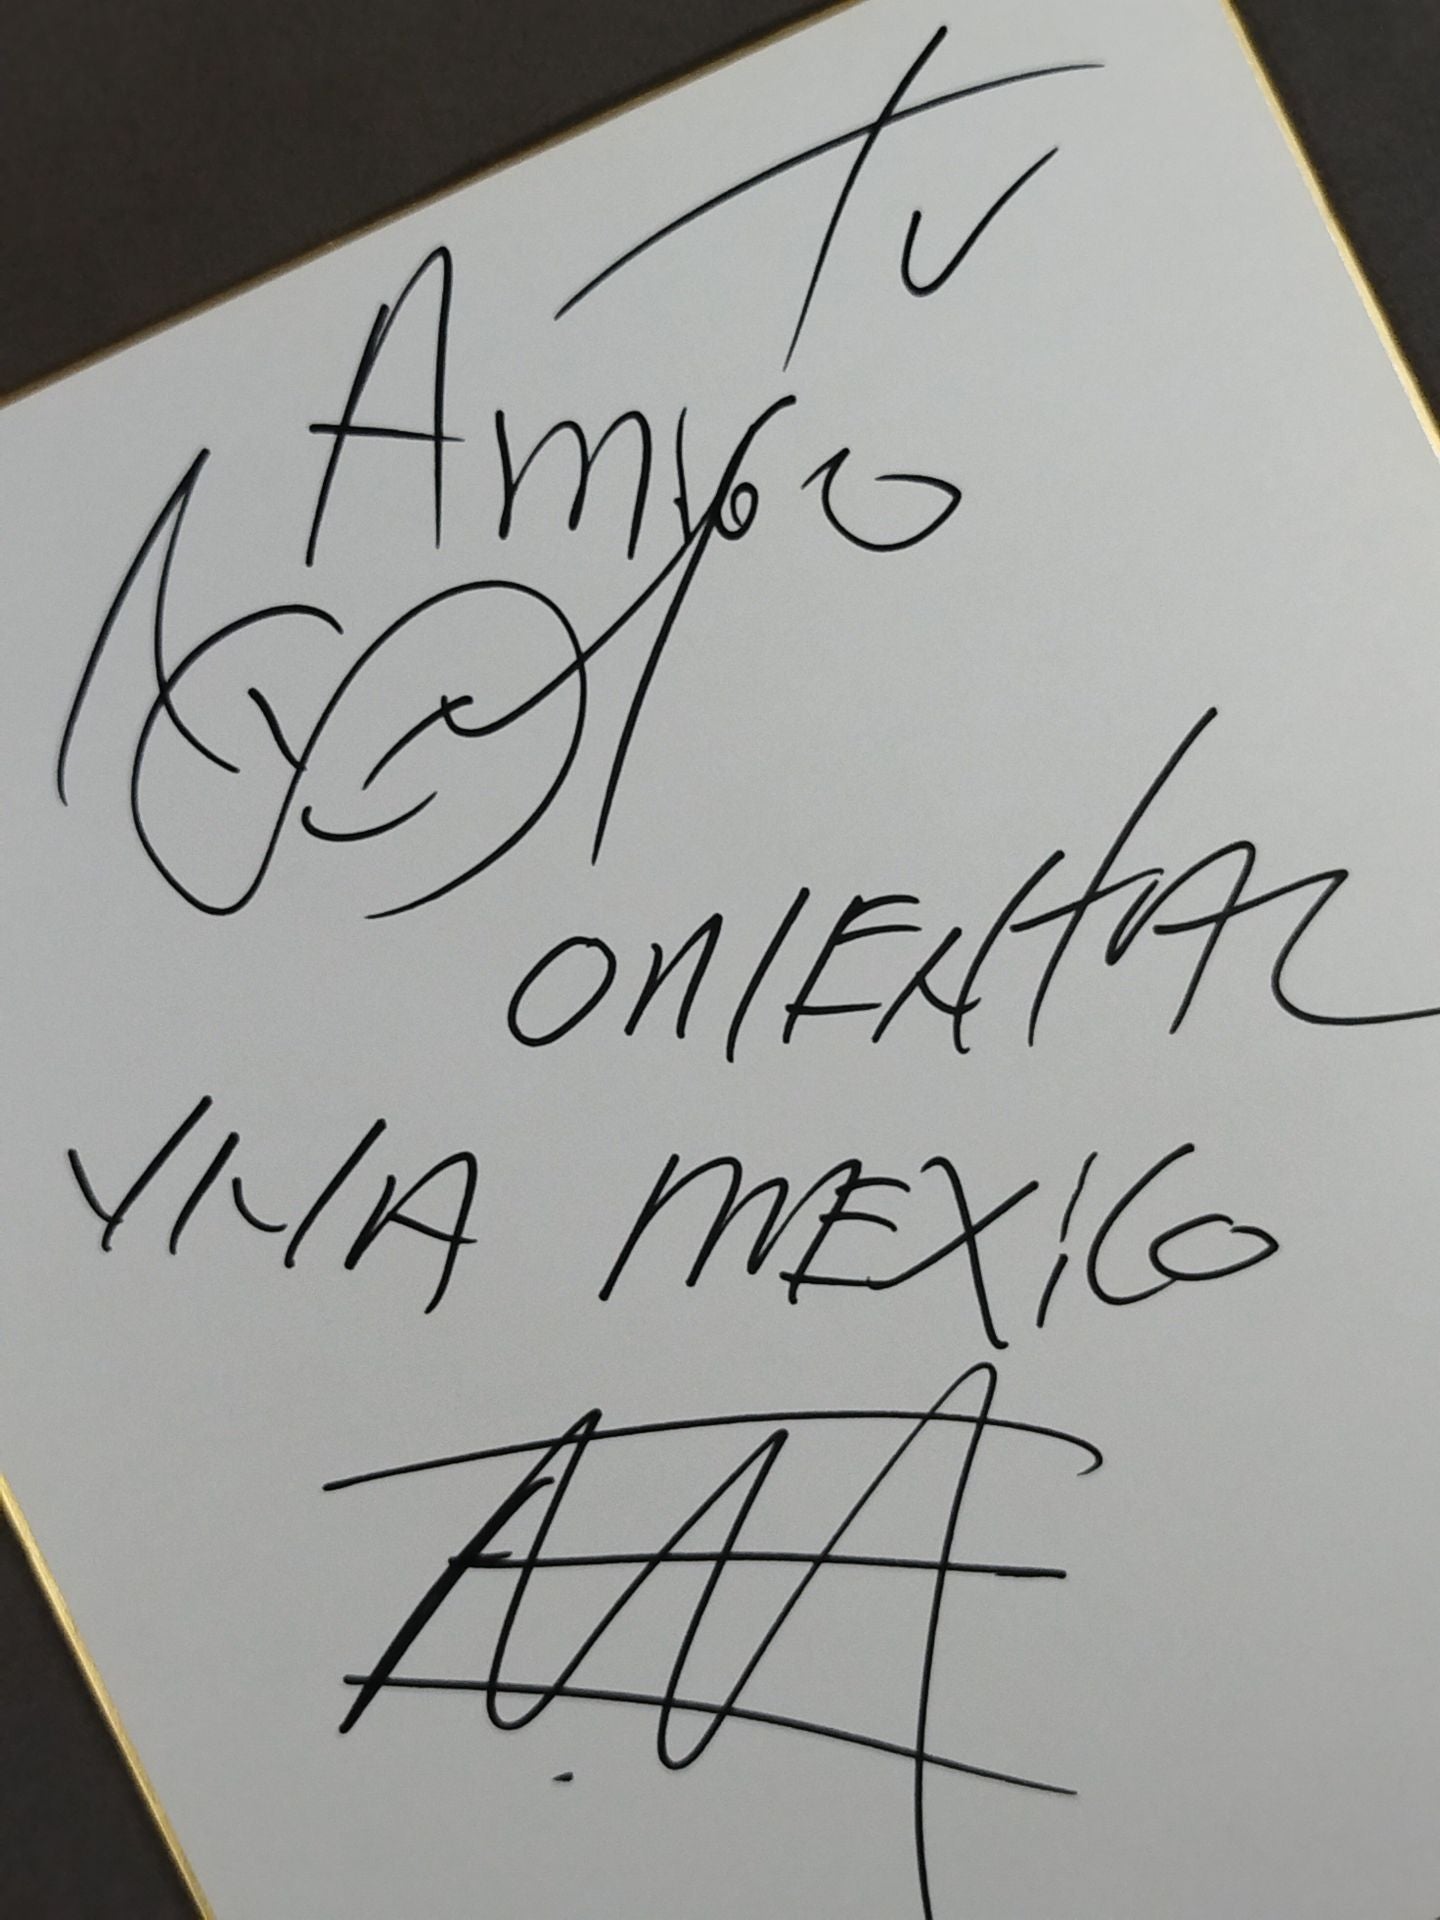 Tu
Amigo
ORIENTAL
VIVA MEXICO